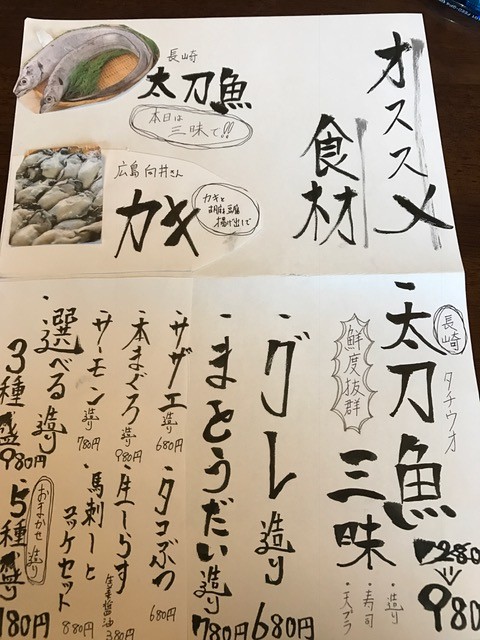 オススメ
食材
長崎
太刀魚
本日は
三昧で!!
広島 向井さん
カキ
カキと
胡麻豆腐
揚げ出しで
長崎
タチウオ
・太刀魚
三昧
鮮度抜群
1280
980
・造り
・寿司
・天プラ
・グレ造り
680円
・まとうだい造り
780円
・サザエ造り
680円
・タコぶつ
680円
・本まぐろ造り
980円
・生しらす
生姜醤油
380円
・サーモン造り
780円
・馬刺しと
ユッケセット
880円
・選べる造り
3種盛
980円
おまかせ造り
・5種盛り